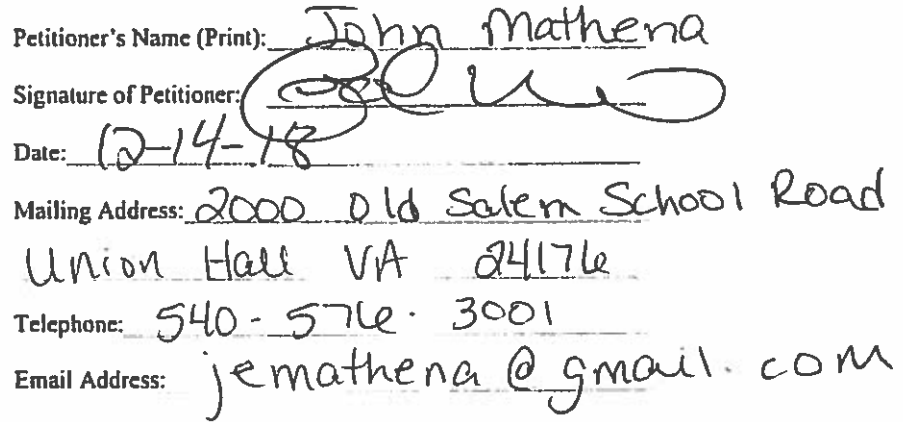 Petitioner's Name (Print): John Mathena
Signature of Petitioner:
Date: 12-14-18
Mailing Address: 2000 Old Salem School Road
Union Hall VA 24176
Telephone: 540-576-3001
Email Address: jemathena@gmail.com